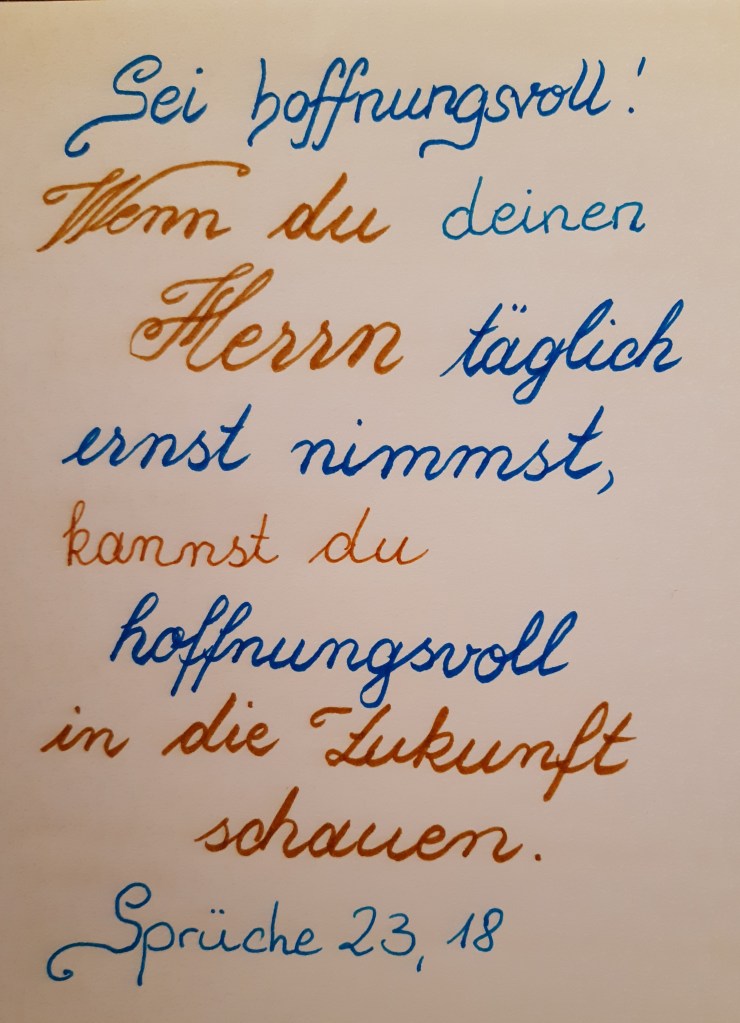 Sei hoffnungsvoll!
Wenn du deinen
Herrn täglich
ernst nimmst,
kannst du
hoffnungsvoll
in die Zukunft
schauen.
Sprüche 23, 18